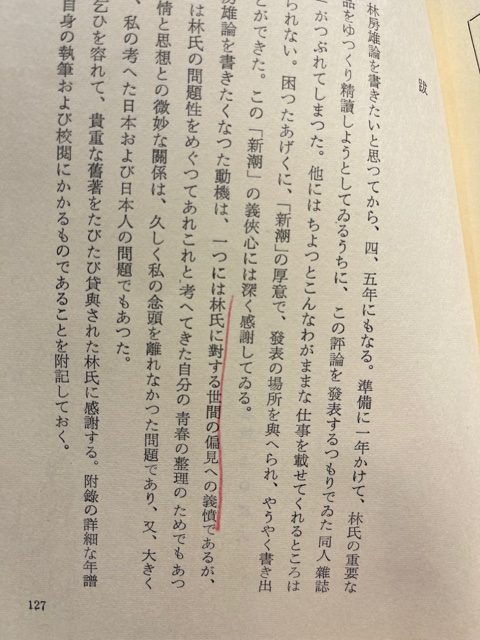 跋
林房雄論を書きたいと思つてから、四、五年にもなる。準備に一年かけて、林氏の重要な
品をゆつくり精讀しようとしてゐるうちに、この評論を發表するつもりでゐた同人雜誌
がつぶれてしまつた。他にはちよつとこんなわがままな仕事を載せてくれるところは
られない。困つたあげくに、「新潮」の厚意で、發表の場所を與へられ、やうやく書き出
とができた。この「新潮」の義俠心には深く感謝してゐる。
房雄論を書きたくなつた動機は、一つには林氏に對する世間の偏見への義憤であるが、
は林氏の問題性をめぐつてあれこれと考へてきた自分の青春の整理のためでもあつ
情と思想との微妙な關係は、久しく私の念頭を離れなかつた問題であり、又、大きく
、私の考へた日本および日本人の問題でもあつた。
乞ひを容れて、貴重な舊著をたびたび貸與された林氏に感謝する。附錄の詳細な年譜
自身の執筆および校閱にかかるものであることを附記しておく。
127